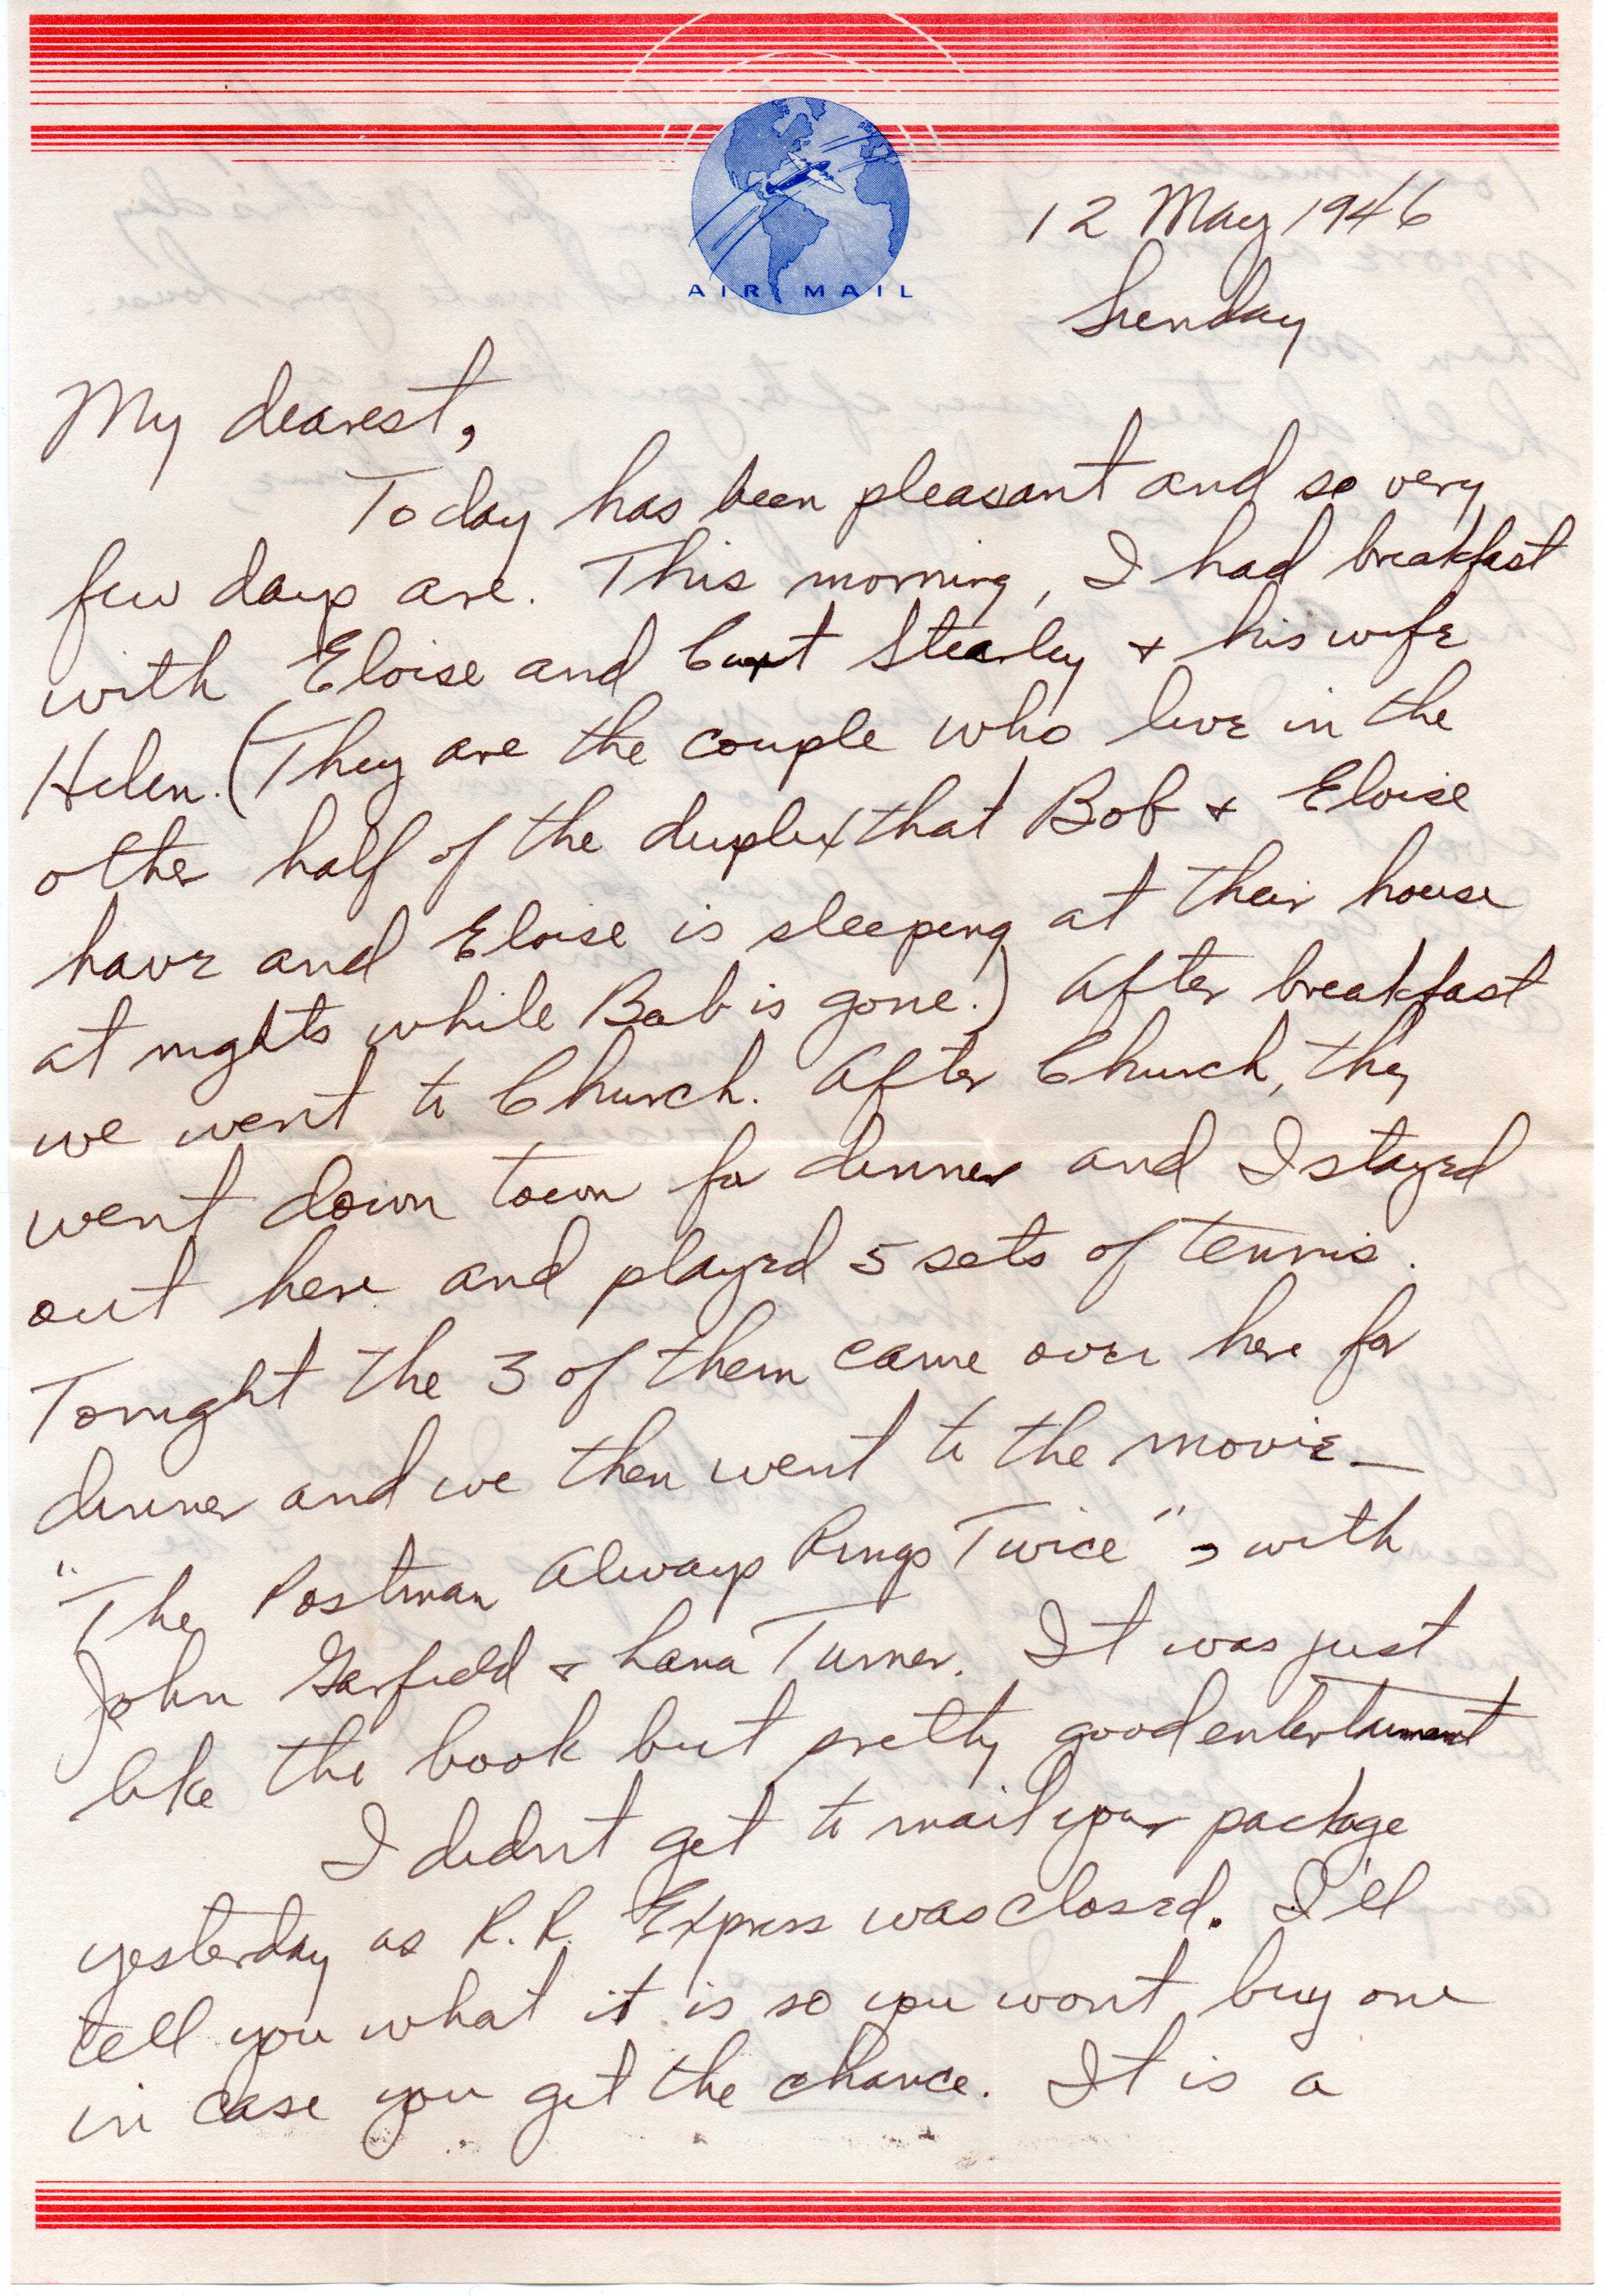 AIR MAIL
12 May 1946
Sunday
My dearest,
Today has been pleasant and so very
few days are. This morning, I had breakfast
with Eloise and Curt Stearley + his wife
Helen. (They are the couple who live in the
other half of the duplex that Bob + Eloise
have and Eloise is sleeping at their house
at nights while Bob is gone.) After breakfast
we went to Church. After Church, they
went down town for dinner and I stayed
out here and played 5 sets of tennis.
Tonight the 3 of them came over here for
dinner and we then went to the movie —
"The Postman Always Rings Twice", with
John Garfield + Lana Turner. It was just
like the book but pretty good entertainment
I didn't get to mail your package
yesterday as R.R. Express was closed. I'll
tell you what it is so you wont buy one
in case you get the chance. It is a